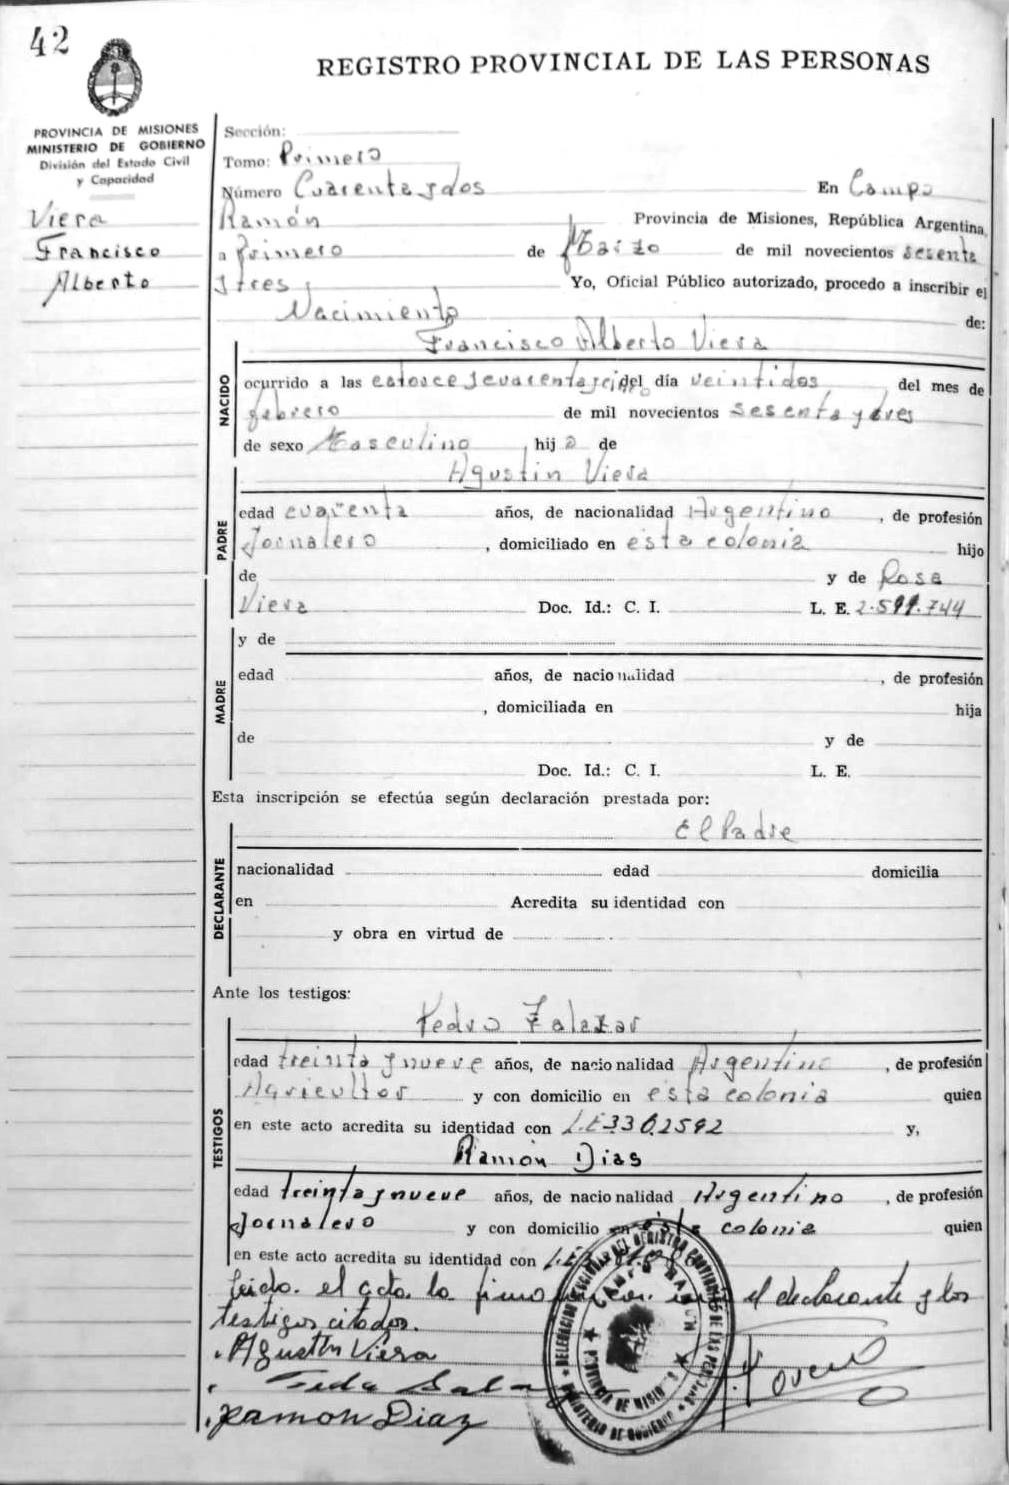 42
REGISTRO PROVINCIAL DE LAS PERSONAS
PROVINCIA DE MISIONES
MINISTERIO DE GOBIERNO
División del Estado Civil
y Capacidad
Viera
Francisco
Alberto
Sección:
Tomo: Primero
Número Cuarenta y dos En Campo
Ramón Provincia de Misiones, República Argentina,
a primero de Marzo de mil novecientos sesenta
y tres Yo, Oficial Público autorizado, procedo a inscribir el
Nacimiento de:
Francisco Alberto Viera
NACIDO
ocurrido a las catorce y cuarenta del día veintidos del mes de
febrero de mil novecientos sesenta y tres
de sexo Masculino hijo de
Agustin Viera
PADRE
edad cuarenta años, de nacionalidad Argentino, de profesión
Jornalero, domiciliado en esta colonia hijo
de y de Rosa
Viera Doc. Id.: C. I. L. E. 2.591.744
MADRE
y de
edad años, de nacionalidad, de profesión
, domiciliada en hija
de y de
Doc. Id.: C. I. L. E.
Esta inscripción se efectúa según declaración prestada por:
El Padre
DECLARANTE
nacionalidad edad domicilia
en Acredita su identidad con
y obra en virtud de
Ante los testigos:
Pedro Zalazar
TESTIGOS
edad treinta y nueve años, de nacionalidad Argentino, de profesión
Agricultor y con domicilio en esta colonia quien
en este acto acredita su identidad con L.E 3302592 y,
Ramón Dias
edad treinta y nueve años, de nacionalidad Argentino, de profesión
Jornalero y con domicilio en esta colonia quien
en este acto acredita su identidad con L.E
leido el acta la firman el declarante y los
testigos citados.
Agustin Viera
Ramon Diaz
PROVINCIA DE MISIONES
MINISTERIO DE GOBIERNO